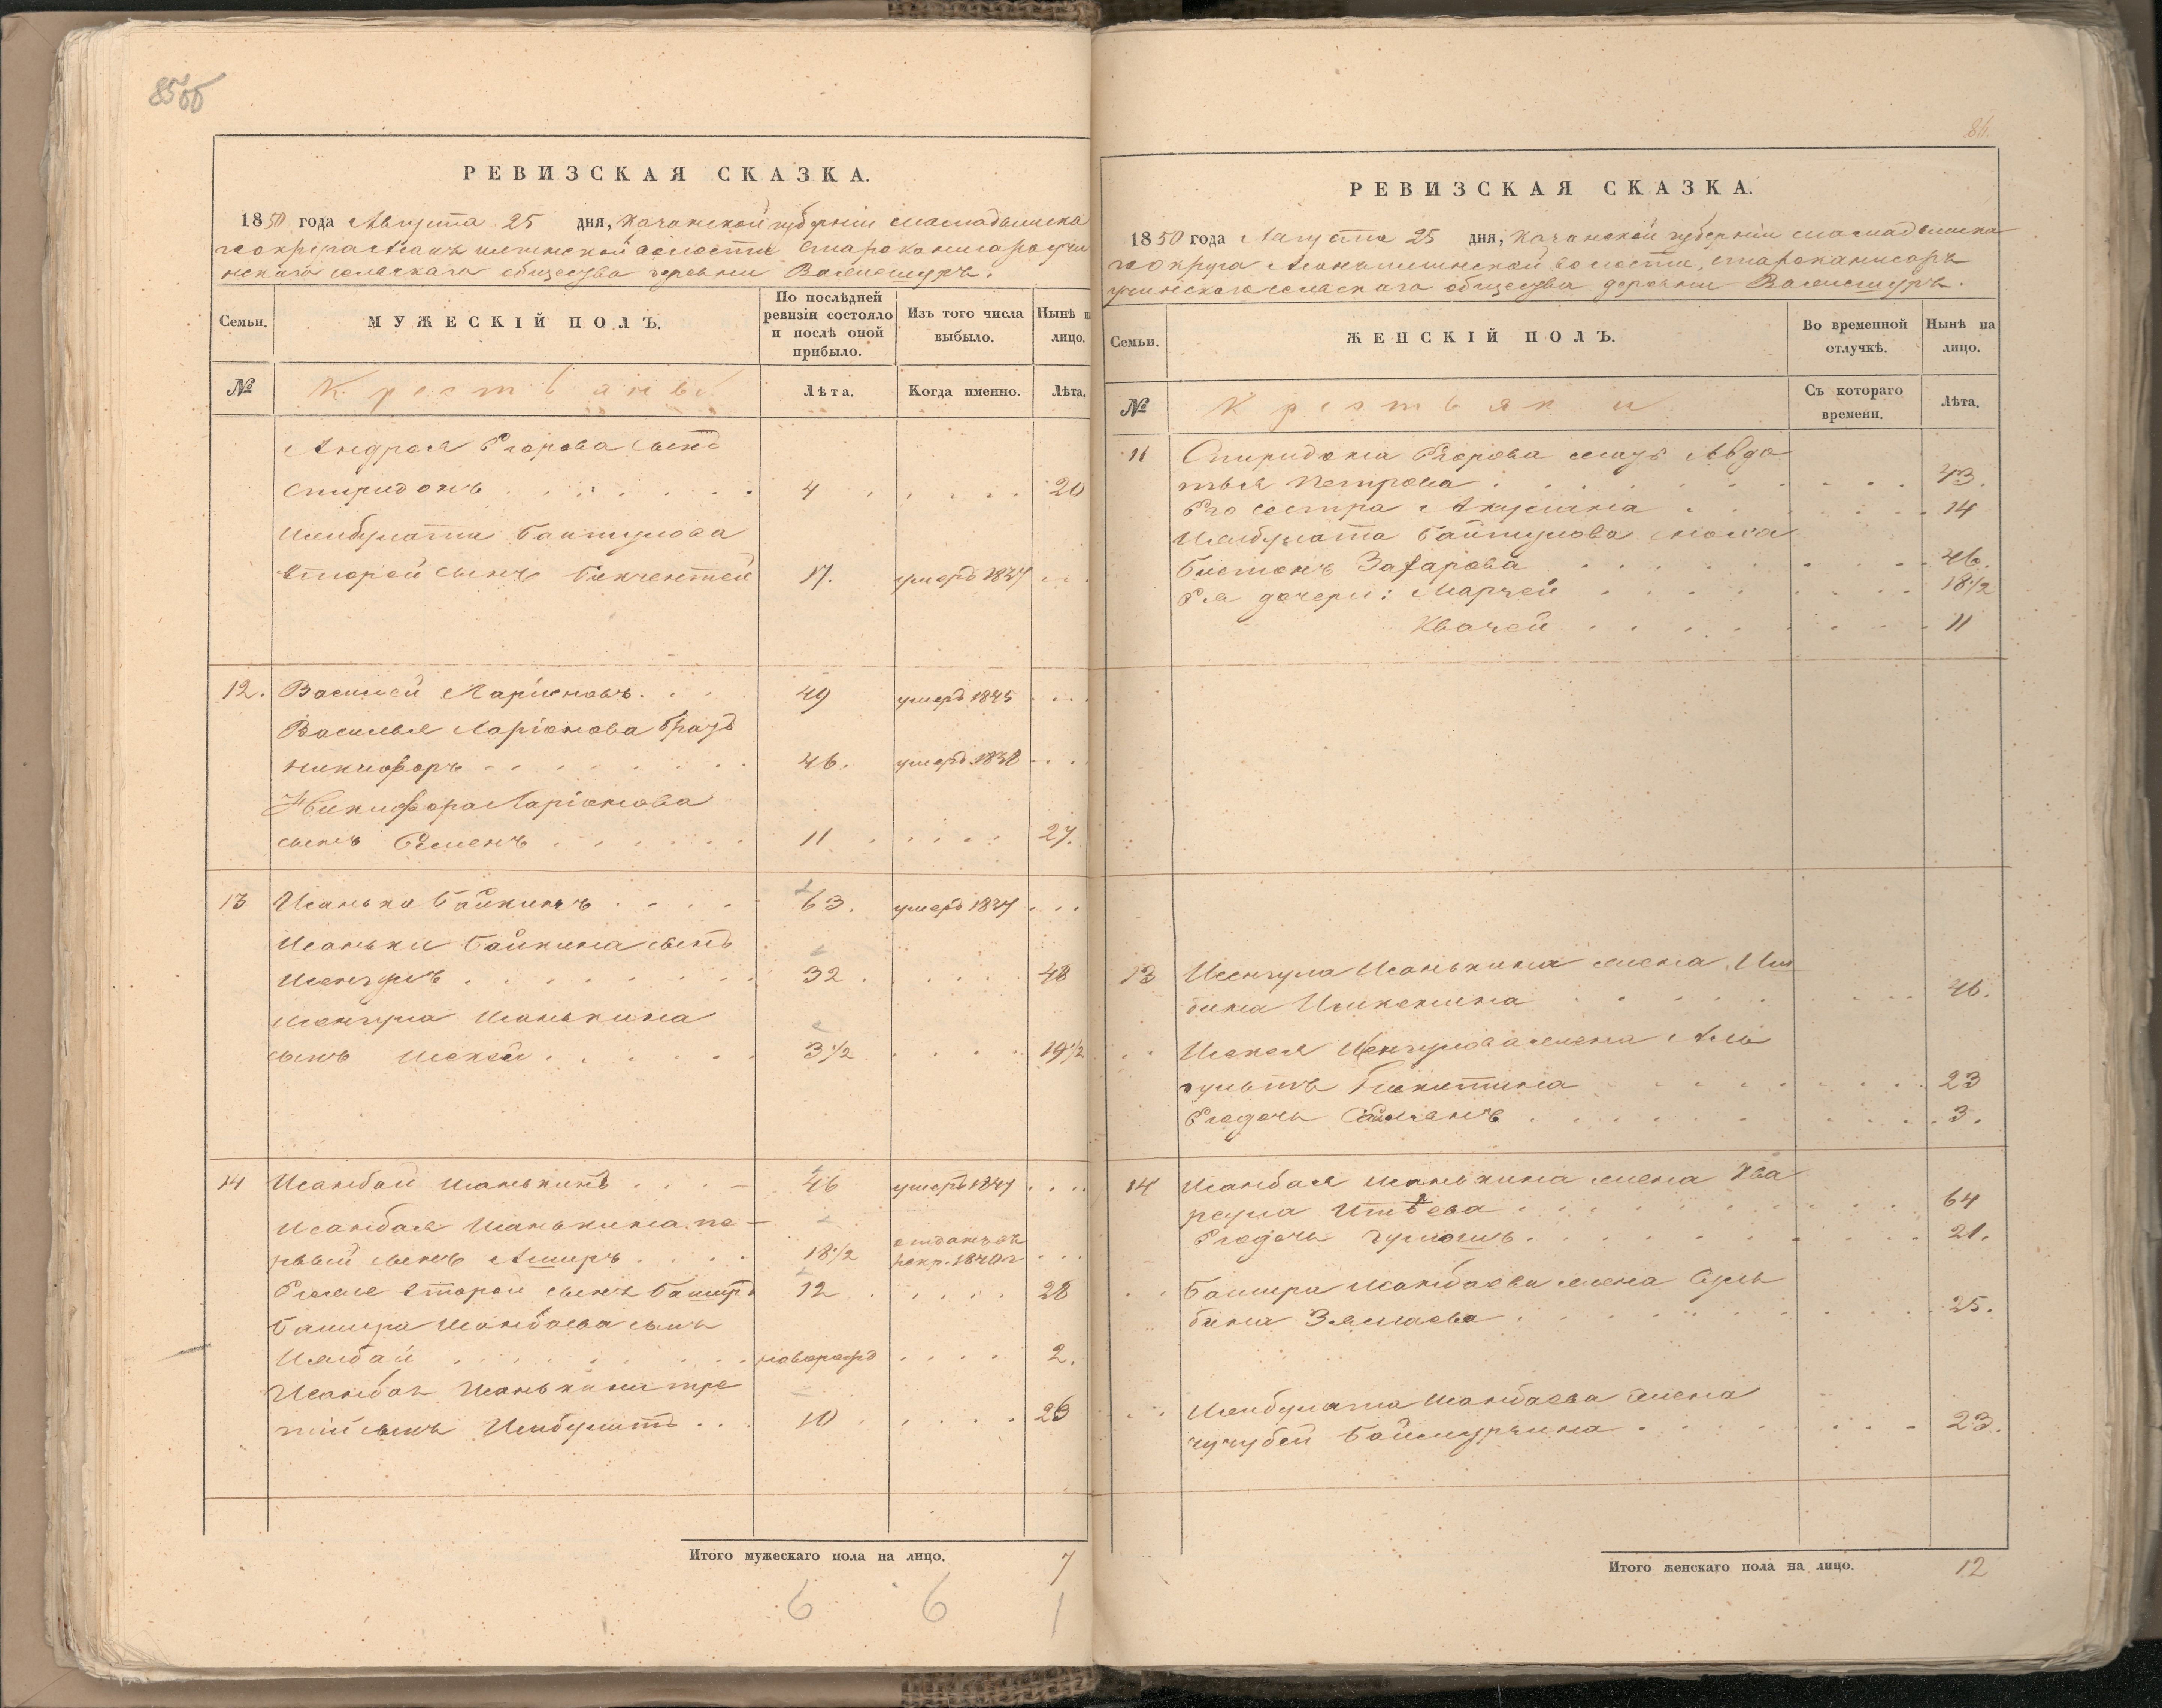 85об
РЕВИЗСКАЯ СКАЗКА.
1850 года Августа 25 дня, Казанской губерніи Мамадышска
го округа волости
скаго сельскаго общества деревни
Семьи. МУЖЕСКІЙ ПОЛЪ. По послѣдней ревизіи состояло и послѣ оной прибыло. Изъ того числа выбыло. Нынѣ на лицо.
№ Крестьяне Лѣта. Когда именно. Лѣта.
Андрея Егорова сынъ
Спиридонъ 4 20
Ишбулата Баитулова
второй сынъ 17. умеръ 1837
12. Василей Ларіоновъ. 49 умеръ 1845
Василья Ларіонова братъ
Никифоръ 46. умеръ 1838
Никифора Ларіонова
сынъ Семенъ 11 27.
13 Исанька Байкинъ 63. умеръ 1837
Исаньки Байкина сынъ
Исенгулъ 32 48
Исенгула Исанькина
сынъ Искей 3½ 19½
14 Исанбай Исанькинъ 46 умеръ 1847
Исанбая Исанькина пе-
рвый сынъ Аширъ 18½ отданъ въ рекр. 1840 г.
Его же второй сынъ Баширъ 12 28
Башира Исанбаева сынъ
Ишбай новорожд 2.
Исанбая Исанькина тре
тій сынъ Ишбулатъ 10 26
Итого мужескаго пола на лицо. 7
6 6 1
86.
РЕВИЗСКАЯ СКАЗКА.
1850 года Августа 25 дня, Казанской губерніи Мамадышска
го округа волости,
сельскаго общества деревни
Семьи. ЖЕНСКІЙ ПОЛЪ. Во временной отлучкѣ. Нынѣ на лицо.
№ Крестьянки Съ котораго времени. Лѣта.
11 Спиридона Егорова мать Авдо
тья Петрова 43.
Его сестра Акулина 14
Ишбулата Байтулова жена
Бистанъ Зафарова 46.
Ея дочери: Марзей 18½
Квачей 11
13 Исенгула Исанькина жена Иш
бика Ишкенина 46.
Искея Исенгулова жена
Бикитина 23
Его дочь 3.
14 Исанбая Исанькина жена Ква
64
Его дочь 21.
Башира Исанбаева жена Сул
бика 25.
Ишбулата Исанбаева жена
Чучубей Баймурзина 23.
Итого женскаго пола на лицо. 12